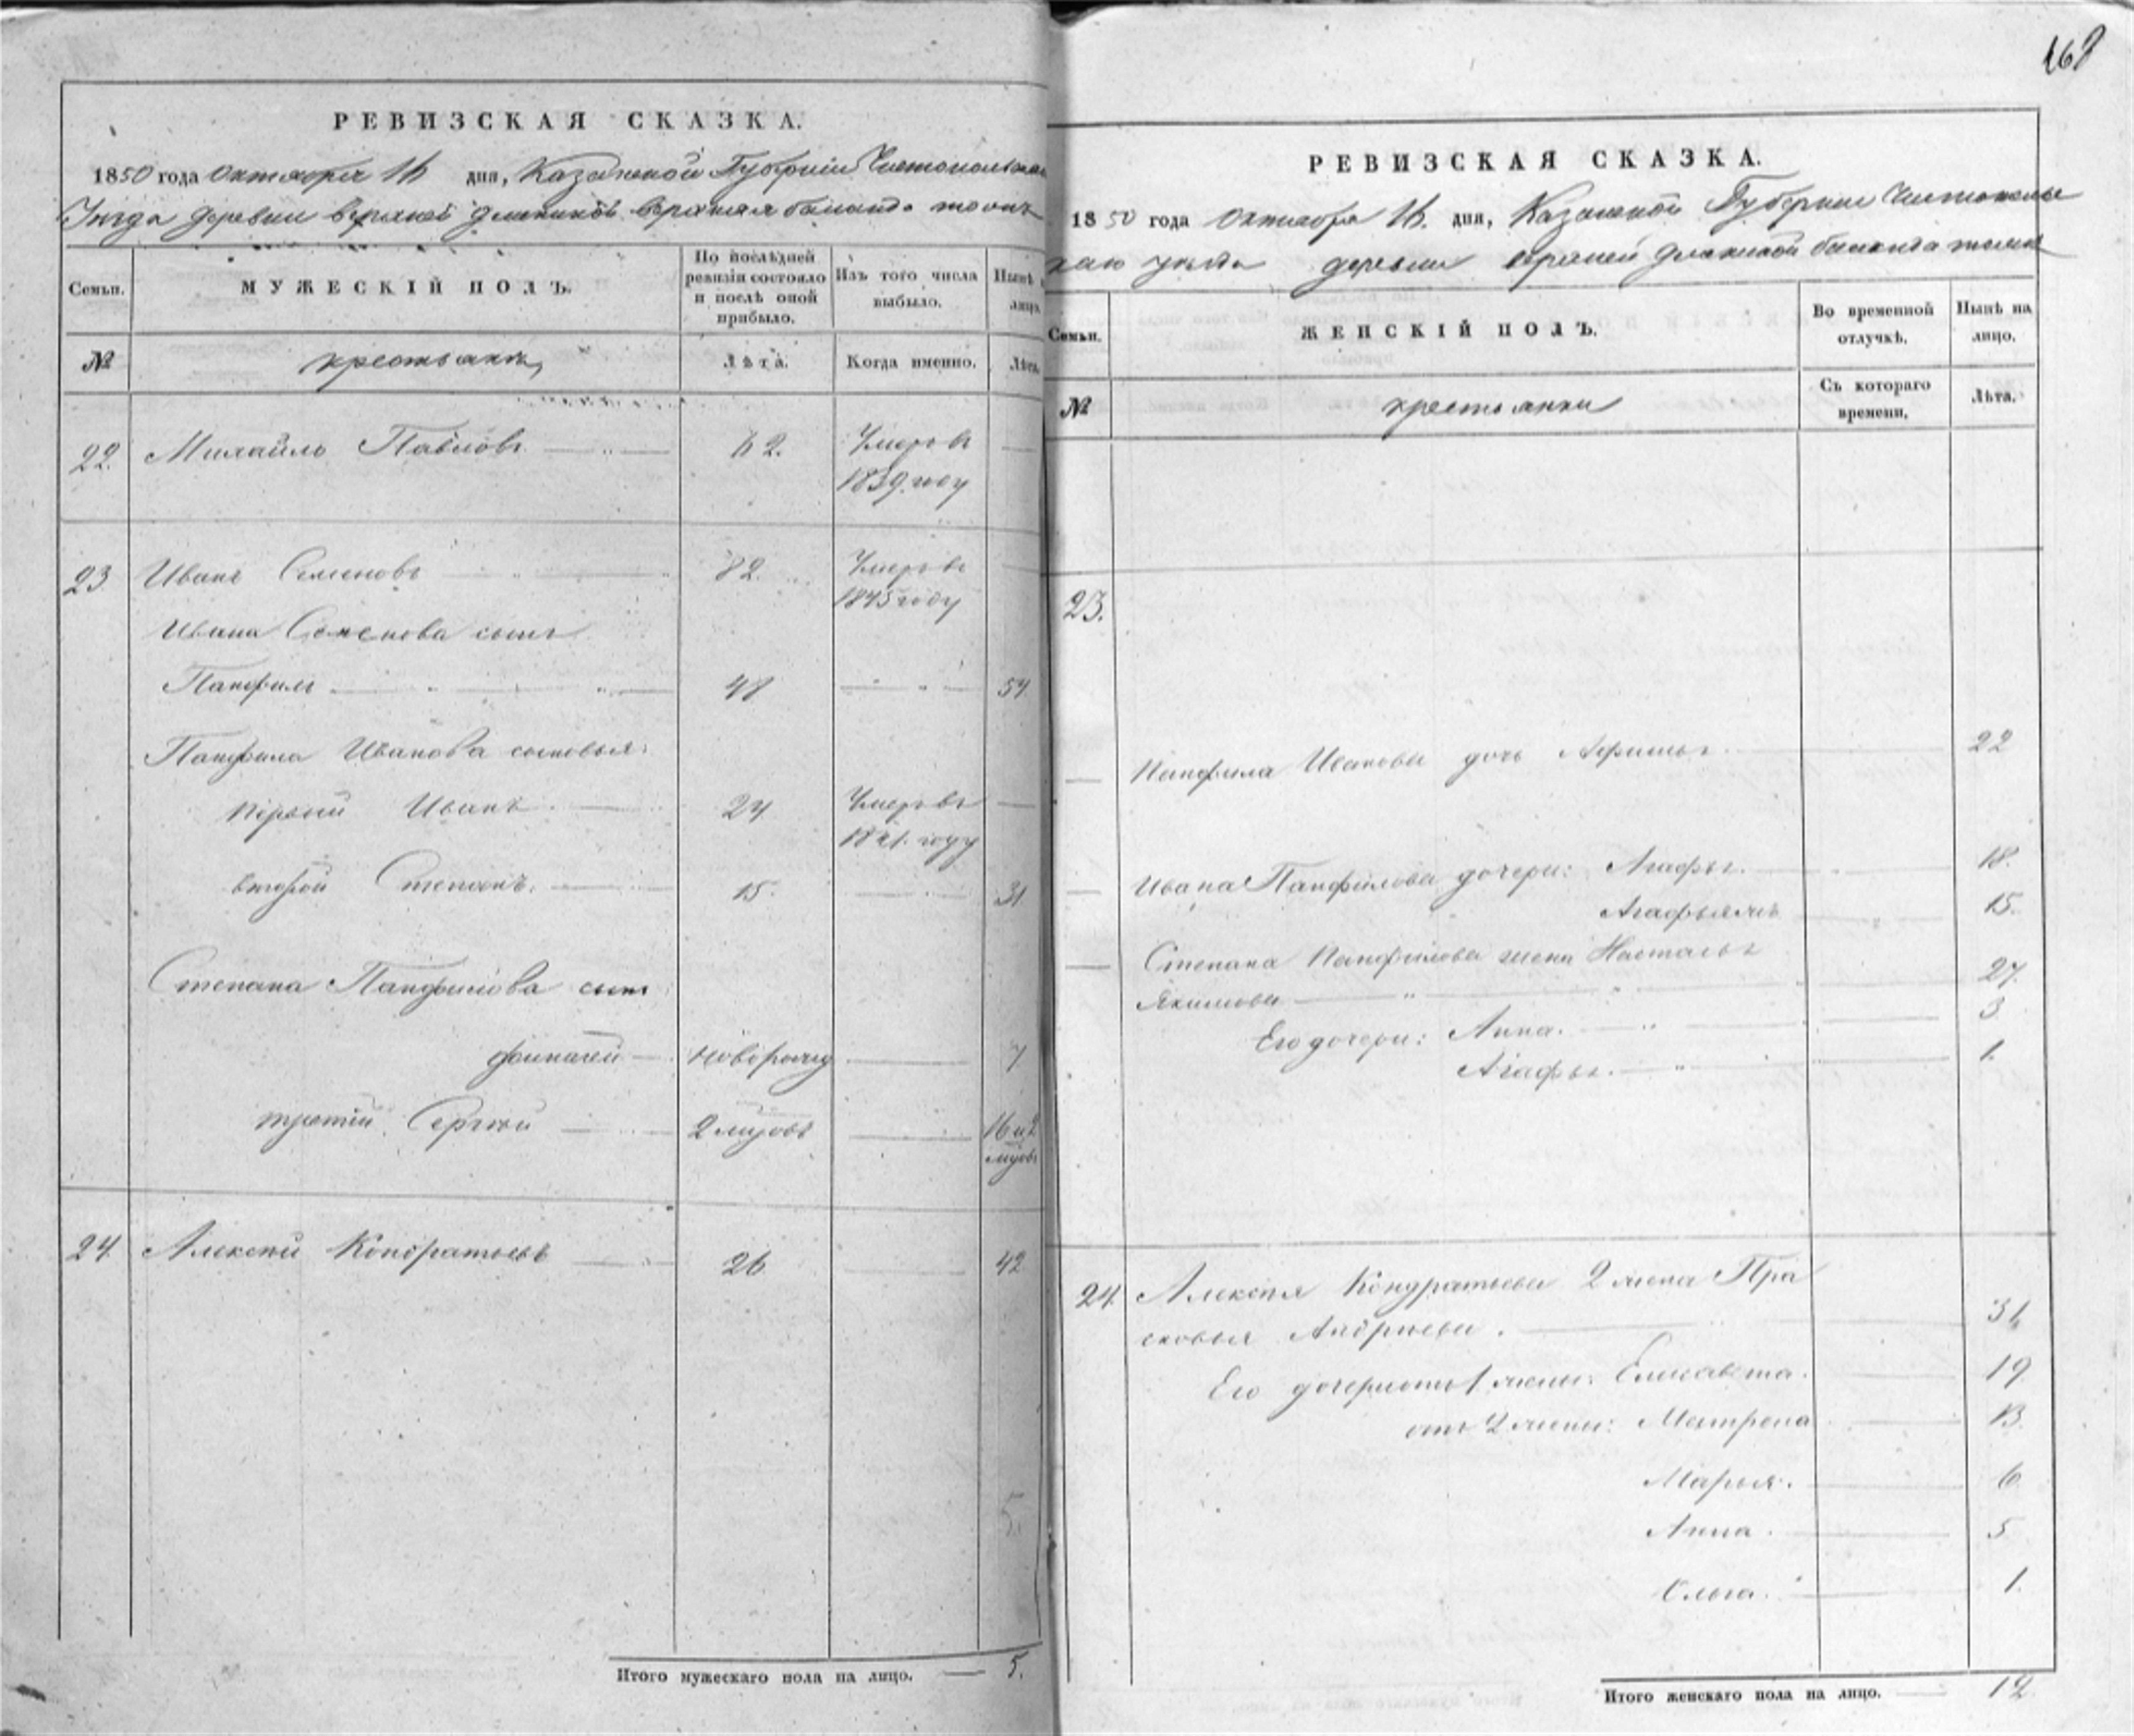 168
РЕВИЗСКАЯ СКАЗКА.
1850 года Октября 16 дня, Казанской Губернiи Чистопольскаго
Уезда деревни Верхней
Семьи.
МУЖЕСКIЙ ПОЛЪ.
По послѣдней ревизiи состояло и послѣ оной прибыло.
Изъ того числа выбыло.
Нынѣ на лицо.
№
крестьяне
Лѣта.
Когда именно.
Лѣта.
22. Михайло Павловъ 62. Умеръ въ
1839 году
23 Иванъ Семеновъ 82. Умеръ въ
1845 году
Ивана Семенова сынъ
Панфилъ 48
Панфила Иванова сыновья:
первый Иванъ 24 Умеръ въ
году
второй Степанъ. 15. 31.
Степана Панфилова сынъ
новорожд 7
третiй Сергей 2 мцовъ 16 и 2
мцовъ
24. Алексей Кондратьевъ 26 42
5.
Итого мужескаго пола на лицо. 5.
РЕВИЗСКАЯ СКАЗКА.
1850 года Октября 16. дня, Казанской Губернiи Чистополь
скаго уезда деревни верхней
Семьи.
ЖЕНСКIЙ ПОЛЪ.
Во временной отлучкѣ.
Нынѣ на лицо.
№
крестьянки
Съ котораго времени.
Лѣта.
23.
Панфила Иванова дочь 22
Ивана Панфилова дочери: 18.
15.
Степана Панфилова жена
Якимова 27.
Его дочери: Анна. 3
1.
24. Алексея Кондратьева 2 жена Пра
сковья Андреева.
Его дочери отъ 1 жены: Елисавета. 19
отъ 2 жены: Матрена 13.
Марья. 6
Анна. 5
Ольга. 1.
Итого женскаго пола на лицо. 12